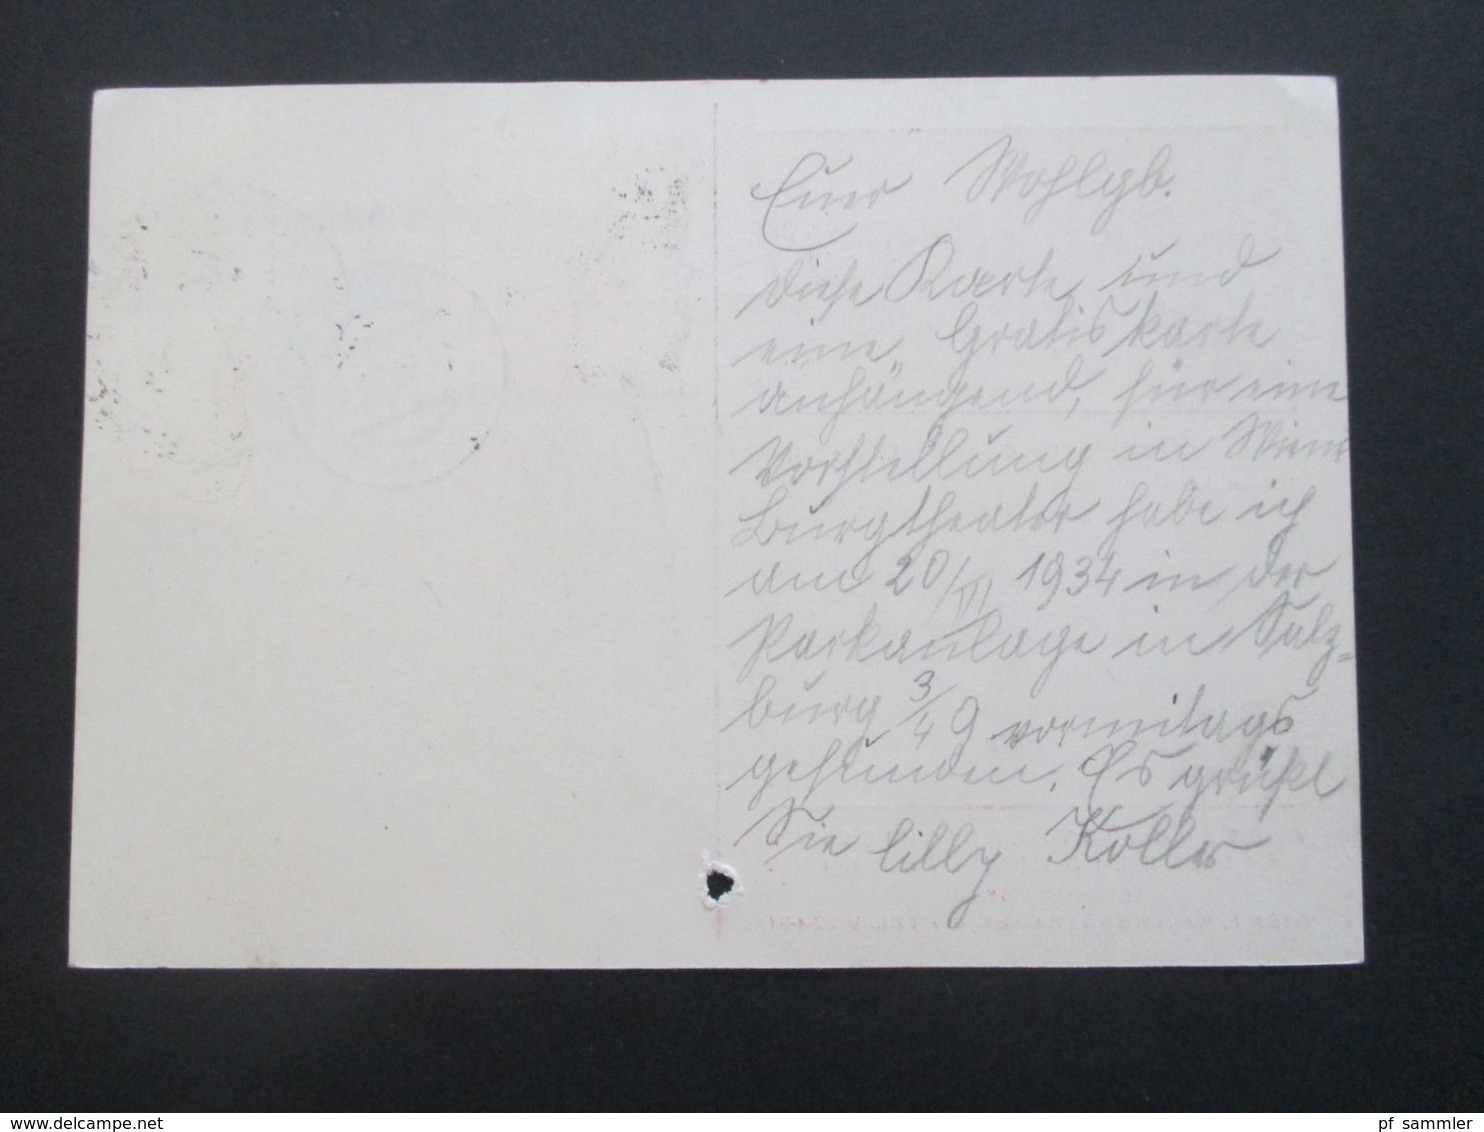 Euer Wohlgb.
diese Karte und
eine Gratiskarte
anhängend, für eine
Vorstellung in Wiener
Burgtheater habe ich
am 20/VI 1934 in der
Parkanlage in Salz=
burg 3/4 9 vormittags
gefunden. Es grüßt
Sie Lilly Koller
delcampe.net
pf_sammler